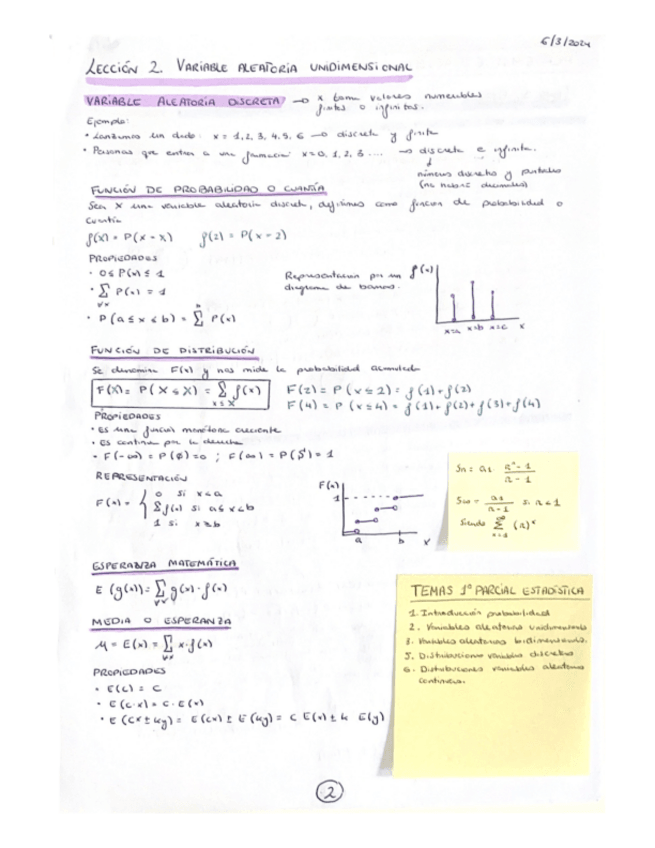 6/3/2024
LECCIÓN 2. VARIABLE ALEATORIA UNIDIMENSIONAL
VARIABLE ALEATORIA DISCRETA → x toma valores numerables
finitos o infinitos.
Ejemplo:
• Lanzamos un dado: x = 1, 2, 3, 4, 5, 6 → discreta y finita
• Personas que entran a una x=0, 1, 2, 3 .... → discreta e infinita.
↓
números discretos y
(no decimales)
FUNCIÓN DE PROBABILIDAD O CUANTÍA
Sea X una variable aleatoria discreta, definimos como función de probabilidad o
cuantía
f(x) = P(X = x) f(2) = P(x = 2)
PROPIEDADES
• 0 ≤ P(x) ≤ 1
• Σ P(x) = 1
∀x
• P(a ≤ x ≤ b) = Σ P(x)
Representación por un
diagrama de barras.
f(x)
x=a x=b x=c x
FUNCIÓN DE DISTRIBUCIÓN
Se denomina F(x) y nos mide la probabilidad acumulada
F(X) = P(X ≤ X) = Σ f(x)
x ≤ X
F(2) = P(x ≤ 2) = f(1) + f(2)
F(4) = P(x ≤ 4) = f(1) + f(2) + f(3) + f(4)
PROPIEDADES
• Es una función monótona creciente
• Es continua por la derecha
• F(-∞) = P(ø) = 0 ; F(∞) = P(S) = 1
REPRESENTACIÓN
F(x) = { 0 si x < a
Σ f(x) si a ≤ x < b
1 si x ≥ b
F(x)
1
a b x
Sn = a1 · rⁿ - 1
r - 1
S∞ = a1
r - 1
si r < 1
Siendo Σ (r)ˣ
ESPERANZA MATEMÁTICA
E (g(x)) = Σ g(x) · f(x)
∀x
MEDIA O ESPERANZA
μ = E(x) = Σ x · f(x)
∀x
PROPIEDADES
• E(c) = c
• E(c·x) = c · E(x)
• E(cx ± ky) = E(cx) ± E(ky) = c E(x) ± k E(y)
TEMAS 1º PARCIAL ESTADÍSTICA
1. Introducción probabilidad
2. Variables aleatorias unidimensionales
3. Variables aleatorias bidimensionales.
5. Distribuciones variables discretas
6. Distribuciones variables aleatorias
continuas.
2